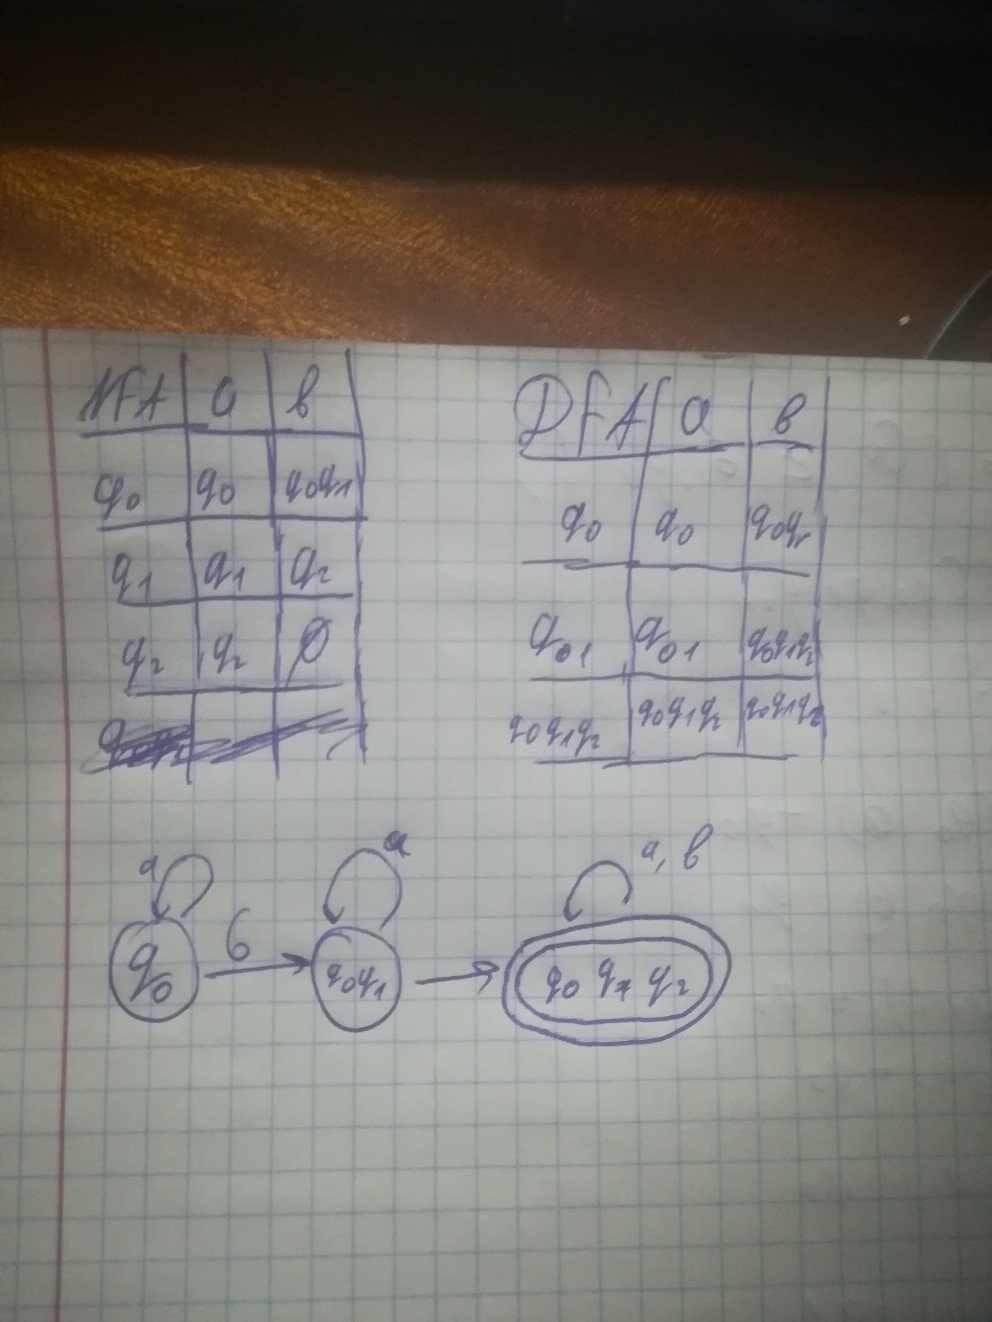 NFA a b
q0 q0 q0q1
q1 q1 q2
q2 q2 Ø
DFA a b
q0 q0 q0q1
q01 q01 q0q1q2
q0q1q2 q0q1q2 q0q1q2
a a a, b
q0 b q0q1 q0 q1 q2